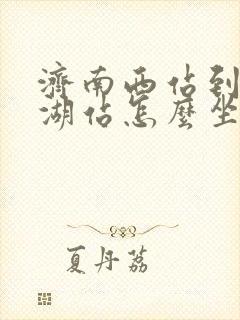 濟南西佔到
湖佔怎麼坐
夏丹荔